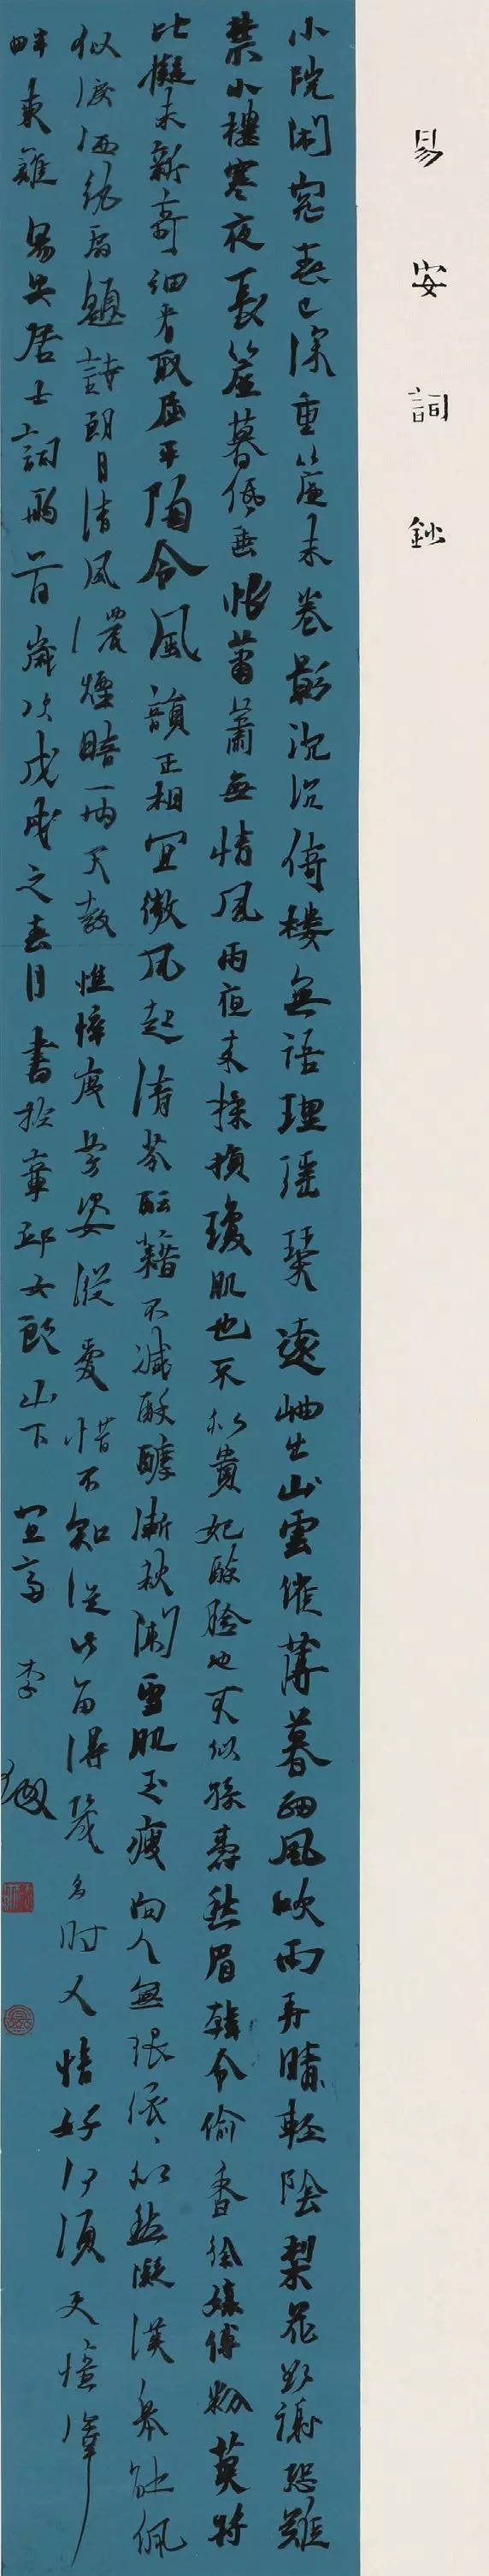 易安詞鈔
小院閑窗春已深重簾未卷影沉沉倚樓無語理瑤琴遠岫出山雲催薄暮細風吹雨弄輕陰梨花欲謝恐難
禁小樓寒夜長簾幕低垂恨蕭蕭無情風雨夜來揉損瓊肌也不似貴妃醉臉也不似孫壽愁眉韓令偷香徐孃傅粉莫將
比擬未新奇細看取屈平陶令風韻正相宜微風起清芬醞藉不減酴醿漸秋闌雪肌玉瘦向人無限依依似愁凝漢皋解佩
似淚洒紈扇題詩朗月清風濃煙暗雨天教憔悴度芳姿縱愛惜不知從此留得幾多時人情好何須更憶澤
畔東籬易安居士詞兩首歲次戊戌之春月書於章邱女郎山下宜齋李